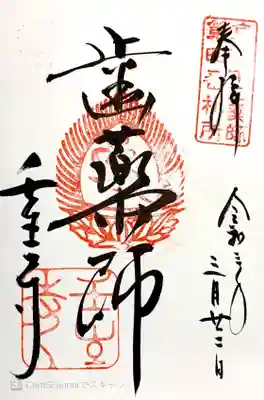 奉拝
令和三年
三月廿二日
歯薬師
壬生寺
CamScannerでスキャン